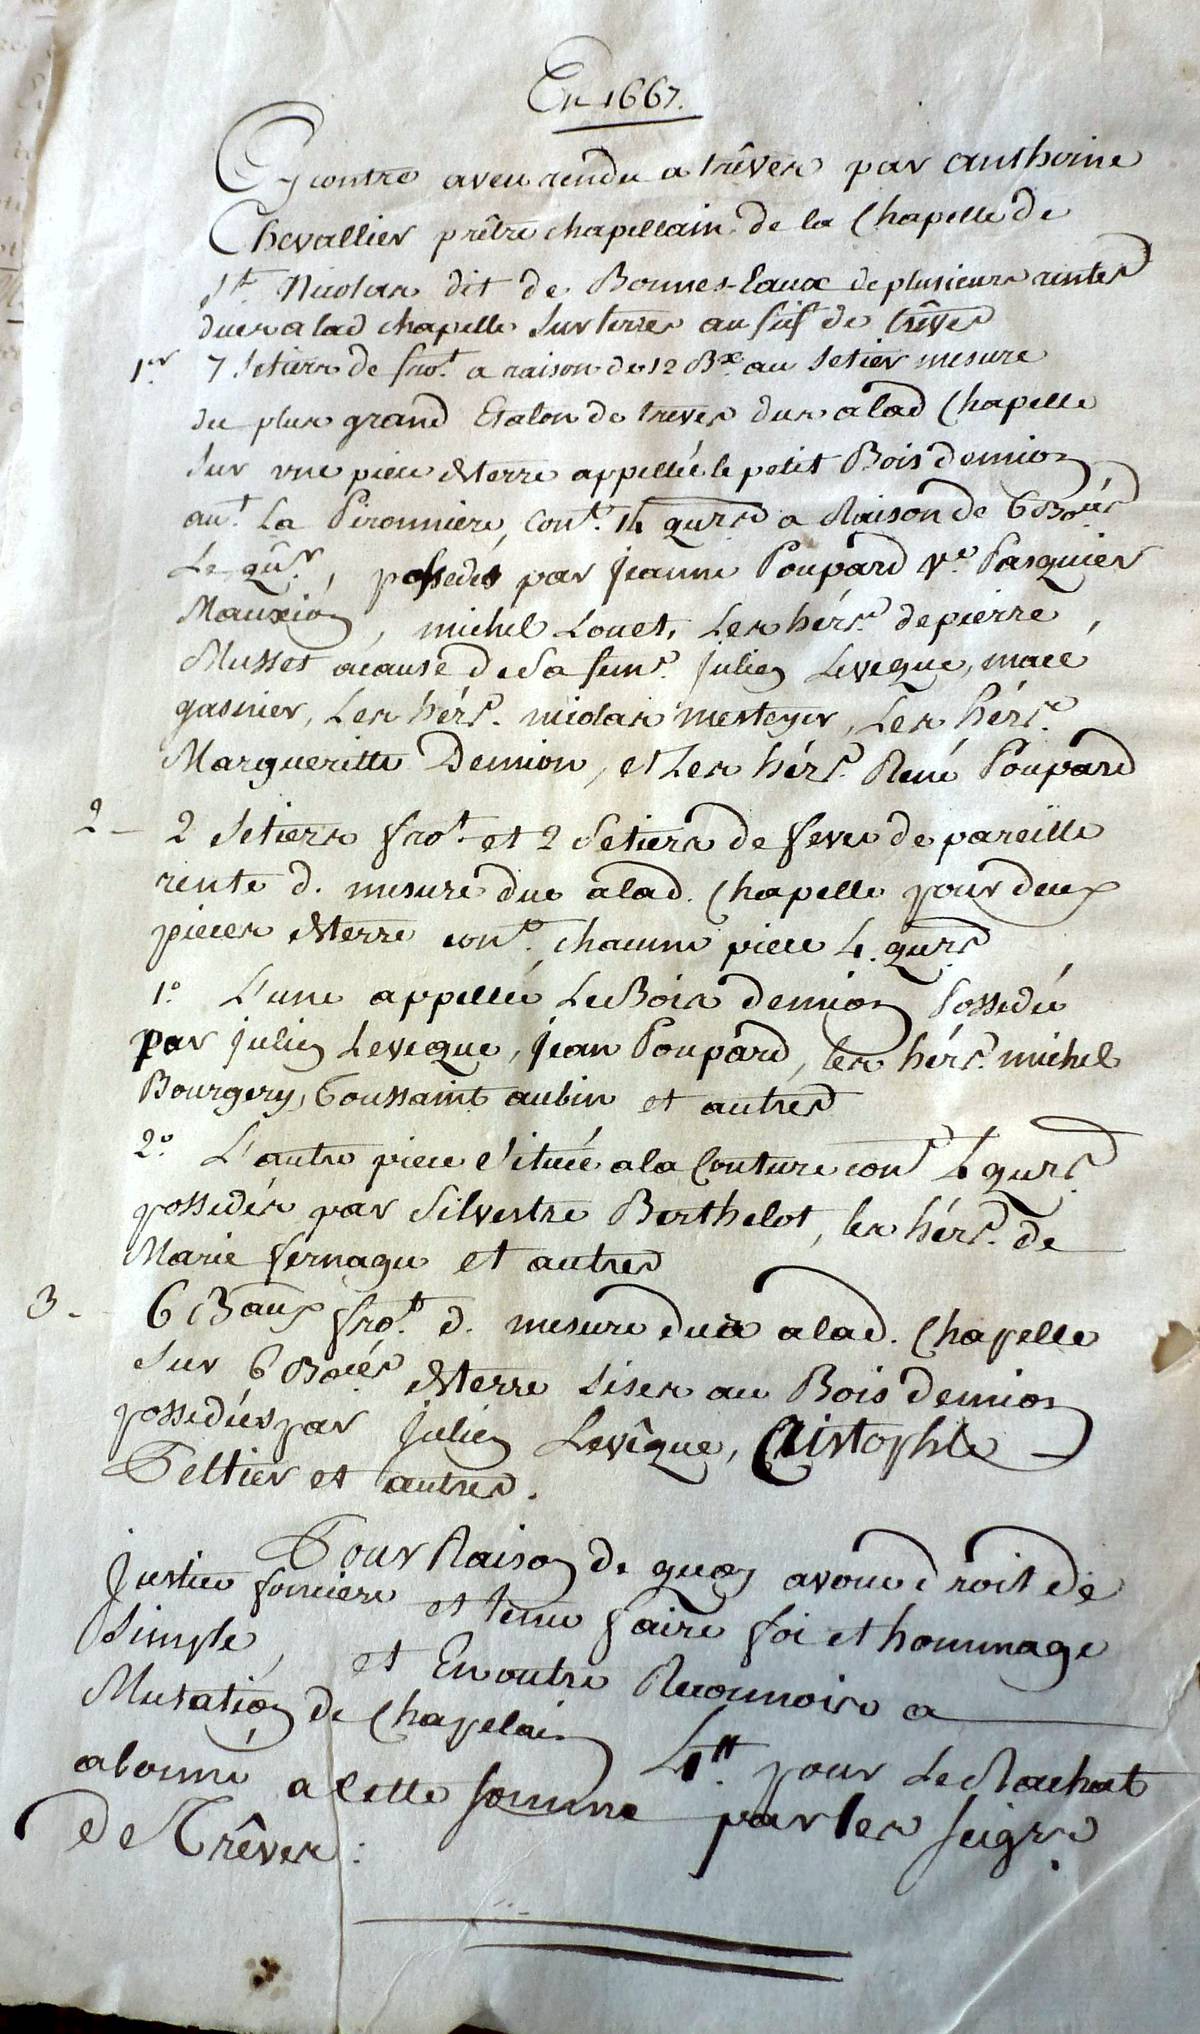 En 1667.
Cy contre aveu rendu a trêves par anthoine
Chevallier prêtre chapellain de la Chapelle de
St. Nicolas dit de Bonnes-Eaux de plusieurs rentes
dues a lad chapelle sur terres au fief de trêves
1er 7 Setiers de fro.t a raison de 12 Bx. au Setier mesure
du plus grand Etalon de treves dus a lad Chapelle
sur une piece de terre appellée le petit Bois demion
au.t La Pironniere, Cont. 14 qurs a Raison de 6 Boées
Le qur., possedés par jeanne Poupard Ve. Pasquier
Mauxion, michel Louet, Les hérs. de pierre
Musset a cause de Sa fem. julien Leveque, macé
gasnier, Les hérs. nicolas mestayer, Les hérs.
Margueritte Demion, et Les hérs. René Poupard
2 – 2 Setiers fro.t et 2 Setiers de feves de pareille
rente d. mesure due a lad. Chapelle pour deux
pieces de terre cont. chacune piece 4. qurs
1o. L'une appellée Le Bois demion Possedée
par julien Leveque, jean Poupard, les hérs. michel
Bourgery, Toussaint aubin et autres
2o. L'autre piece Située a la Couture cont 4 qurs.
possedés par Silvestre Berthelot, les hérs. de
Marie fernagu et autres
3 – 6 Baux fro.t d. mesure dus a lad. Chapelle
sur 6 Boées de terre sises au Bois demion
possedées par julien Levêque, Cristophle
Peltier et autres.
Pour Raison de quoy avoue droit de
justice fonciere et tenu faire foi et hommage
Simple, et En outre Reconnoir a
Mutation de Chapelain 4tt. pour Le Rachat
abonné a Cette Somme par les seigrs
de Trêves :